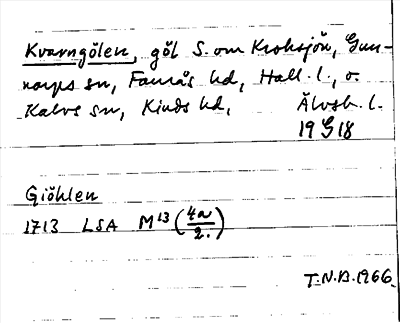 Kvarngölen, göl S. om Kroksjön, Gun-
narps sn, Faurås hd, Hall. l., o.
Kalvs sn, Kinds hd, Älvsb. l.
19 G 18
Giöhlen
1713 LSA M 13 (4a/2.)
T.N.B. 1966.